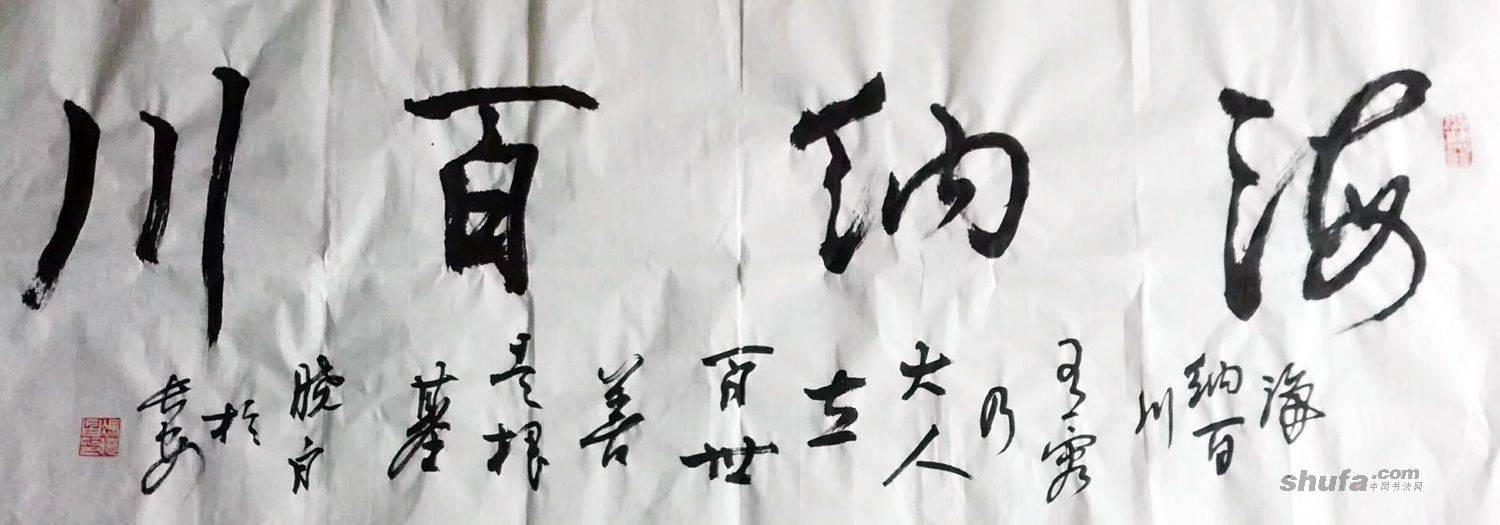 海纳百川
海
纳百
川
有容
乃
大人
立
百世
善
是根
基
於
长安
shufa.com
中国书法网